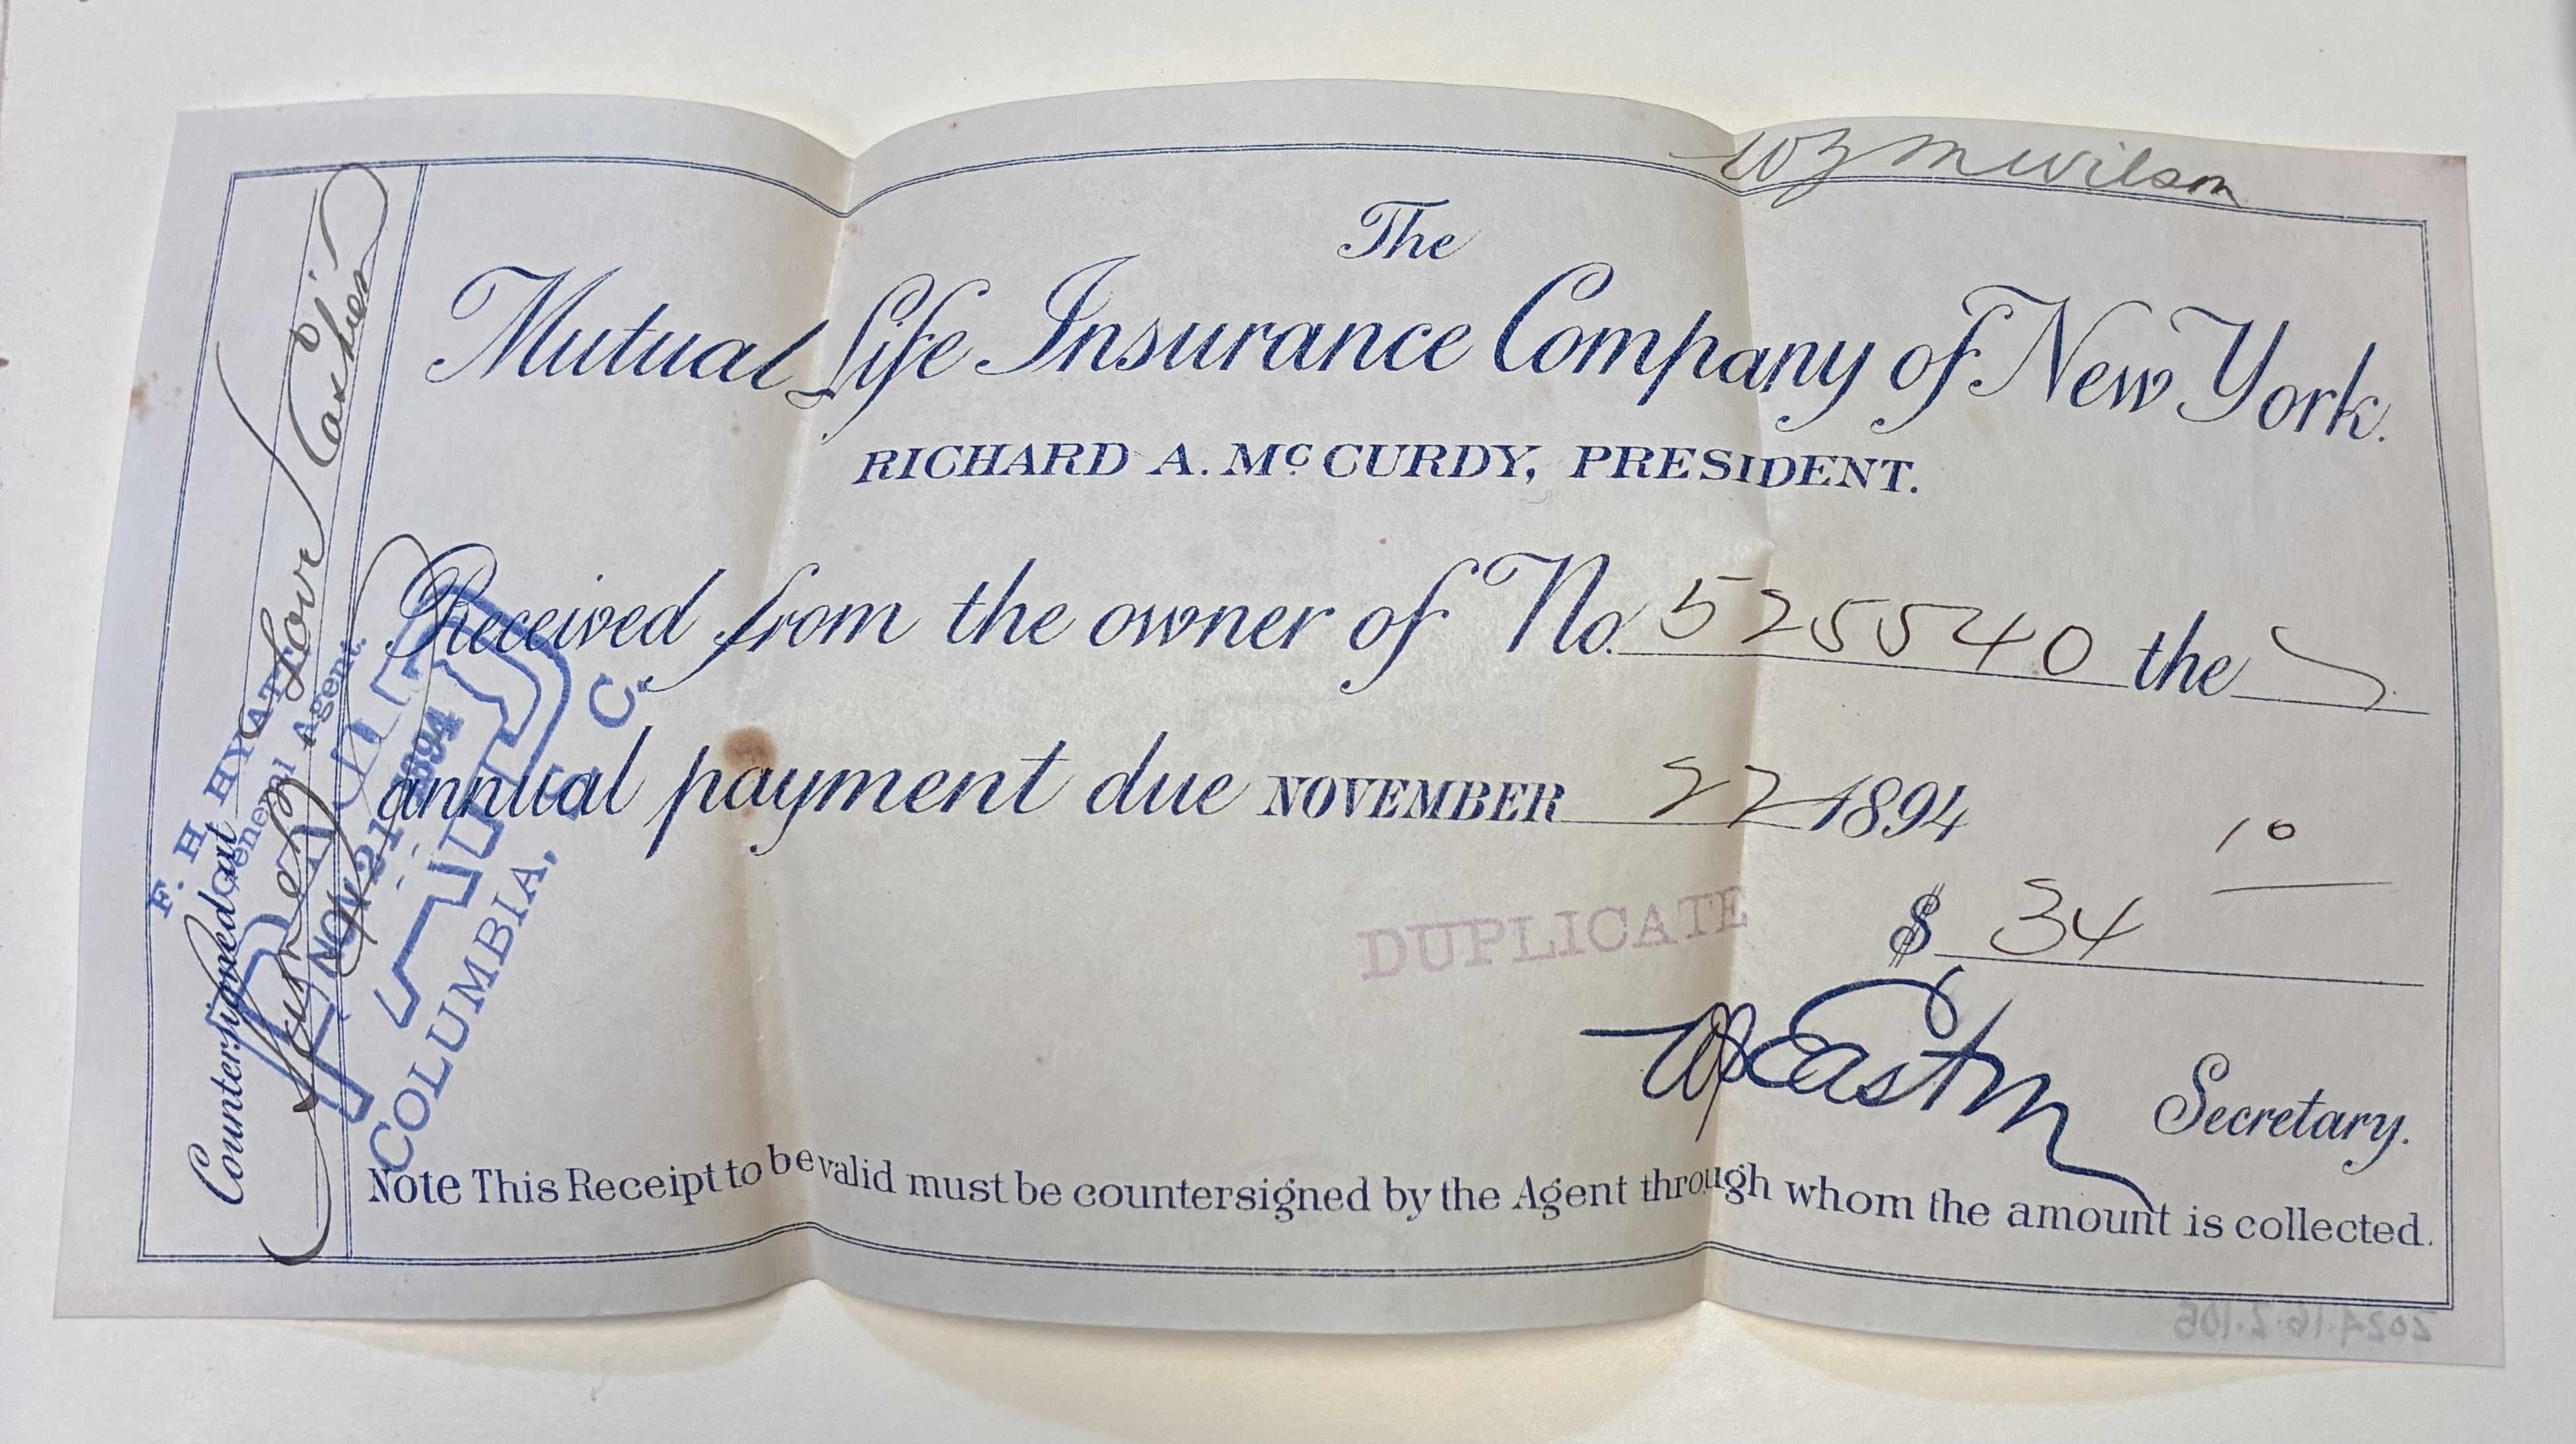 Wm Wilson
The
Mutual Life Insurance Company of New York.
RICHARD A. McCURDY, PRESIDENT.
Received from the owner of No. 525540 the
annual payment due NOVEMBER 22 1894
DUPLICATE
$ 34 10
Secretary.
Note This Receipt to be valid must be countersigned by the Agent through whom the amount is collected.
Countersigned at
Cashier
F. H. HYATT
General Agent.
NOV 21 1894
COLUMBIA, S. C.
2024.16.2.105